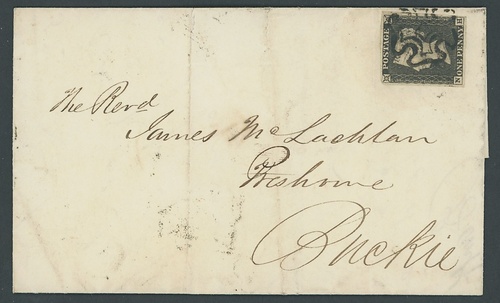 POSTAGE
ONE PENNY
The Revd
James McLachlan
Preshome
Buckie